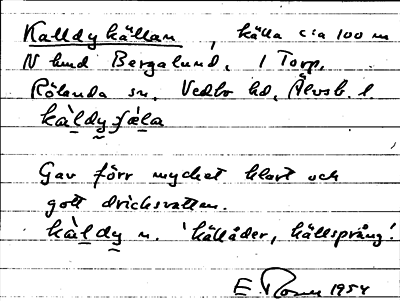 Kalldykällan, källa c:a 100 m
N hmd Bergalund, 1 Torp,
Rölanda sn, Vedbo hd, Älvsb. l.
kàldyfæla
Gav förr mycket klart och
gott dricksvatten.
kàldy n. 'källåder, källsprång'.
E. 1954